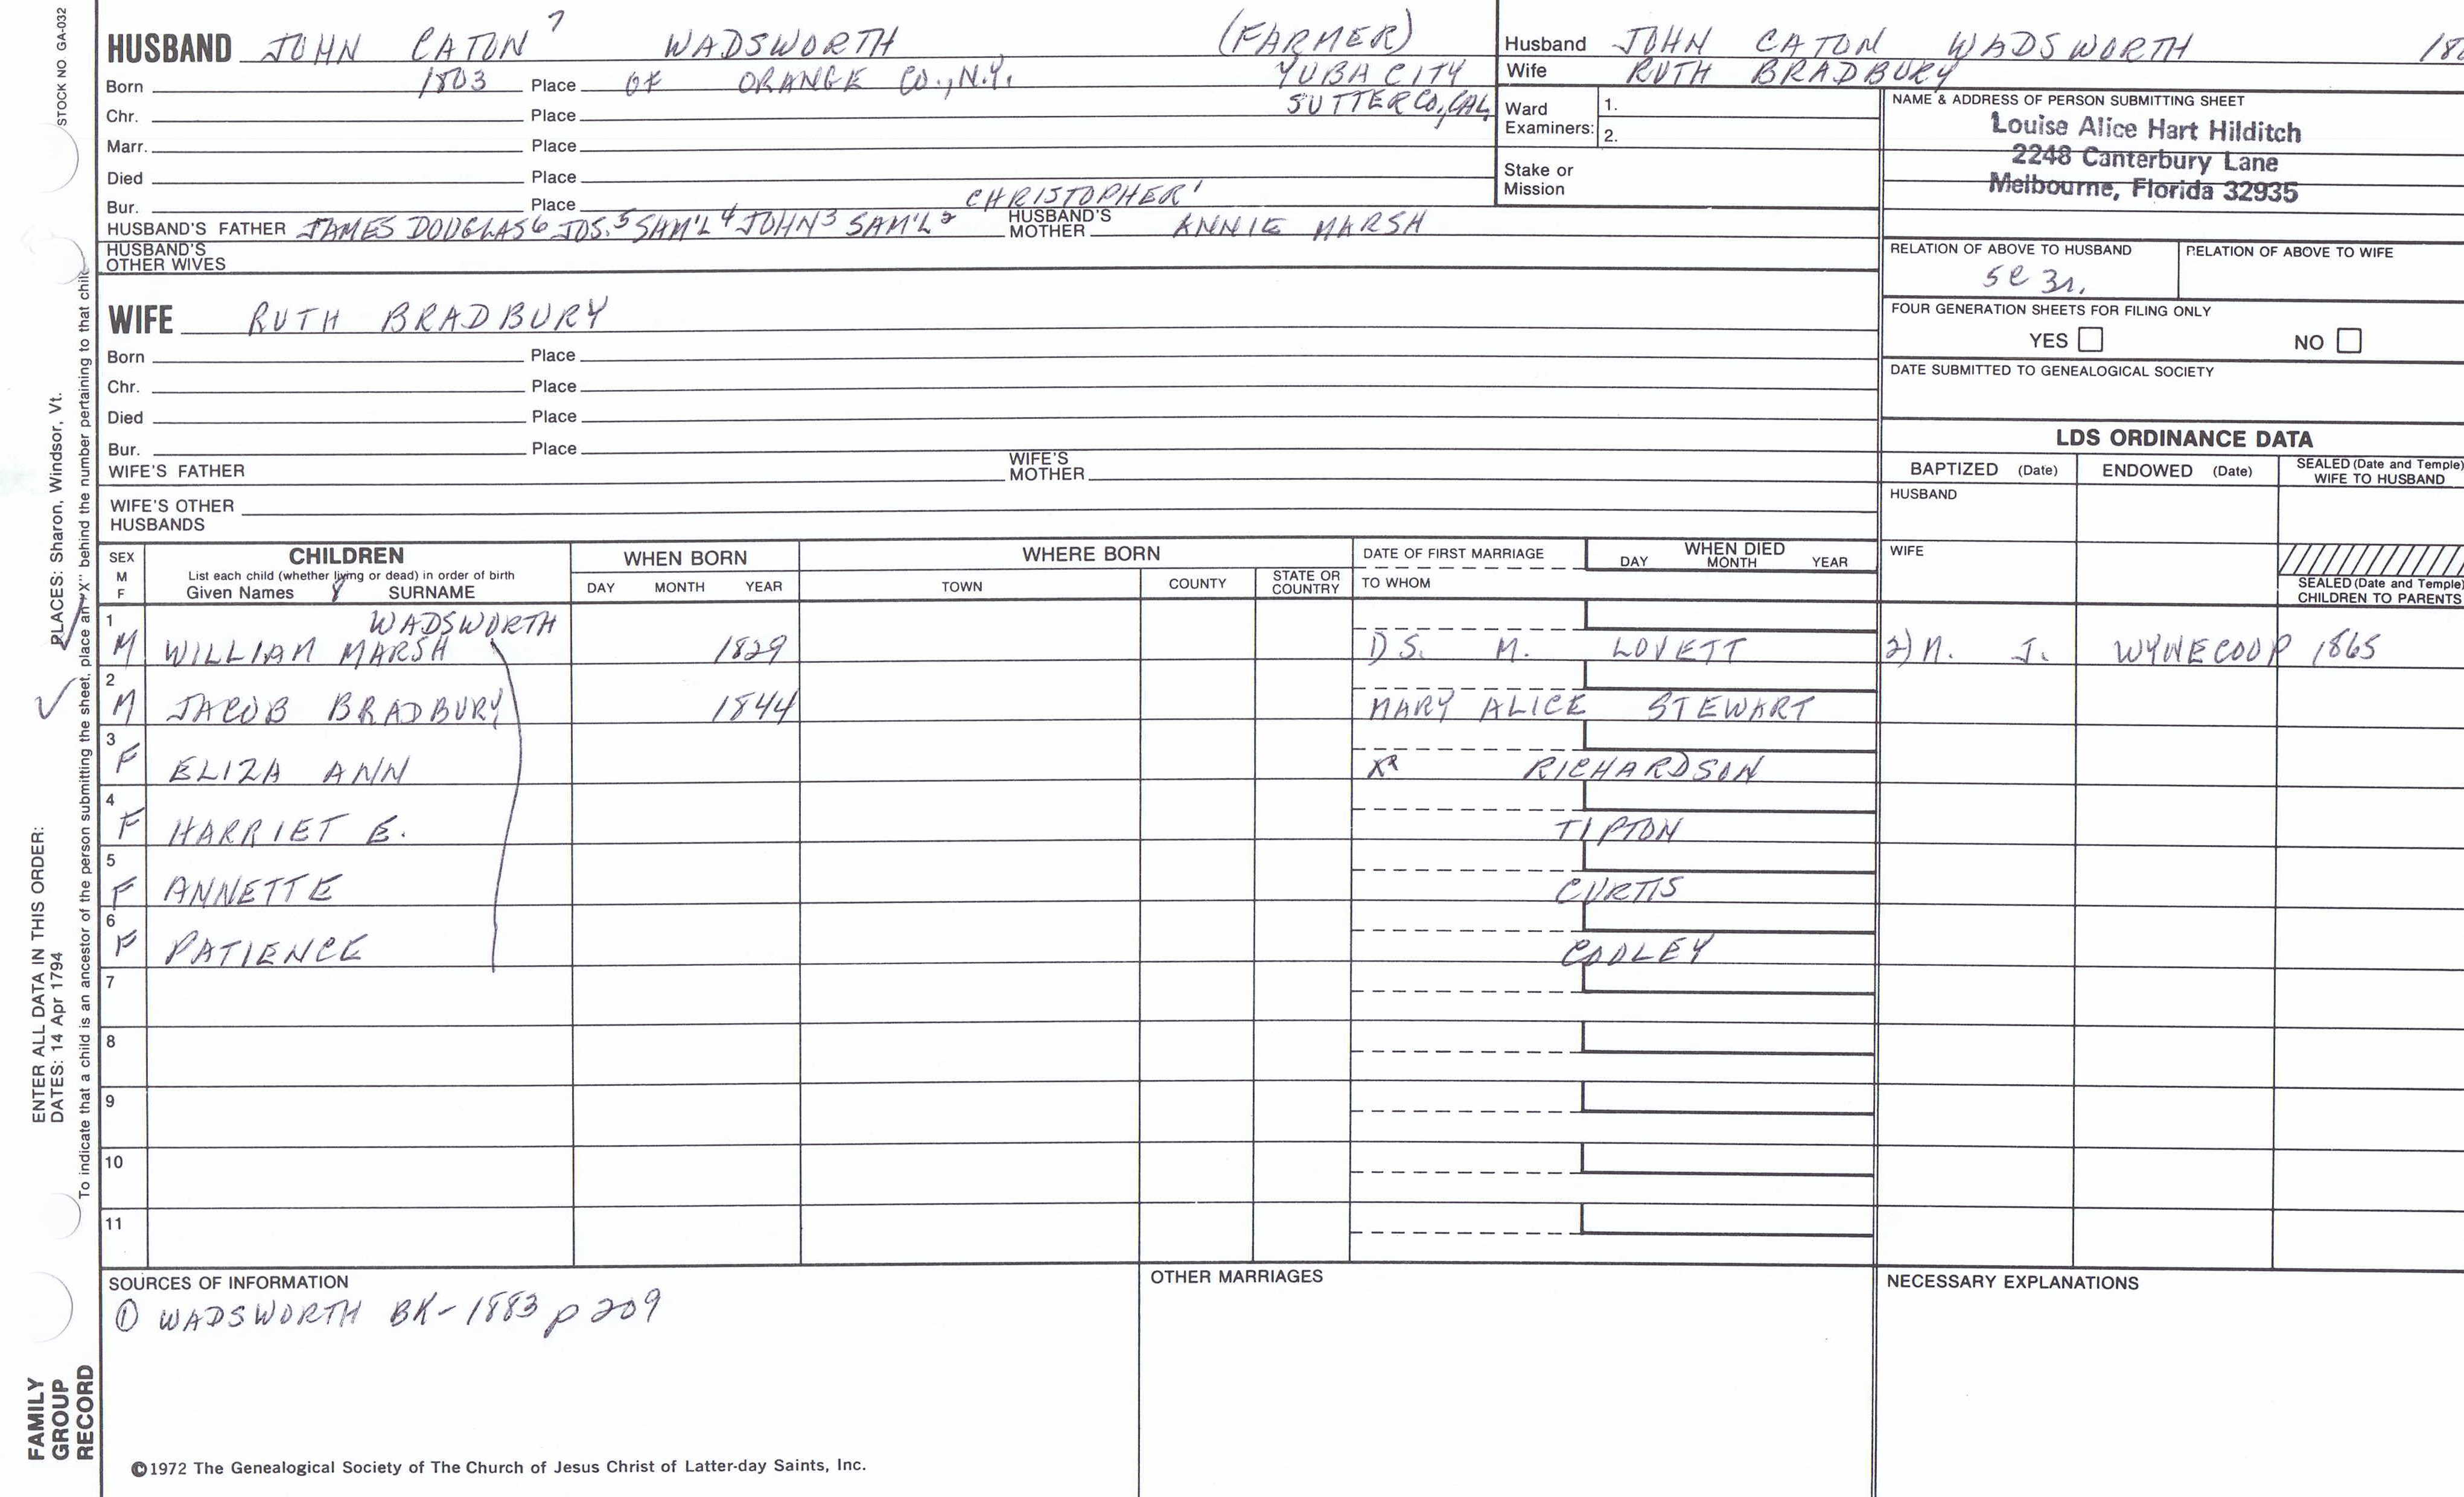 STOCK NO GA-032
HUSBAND JOHN CATON 7 WADSWORTH (FARMER)
Born 1803 Place OF ORANGE CO., N.Y. YUBA CITY
SUTTER CO, CAL
Chr. Place
Marr. Place
Died Place
Bur. Place CHRISTOPHER 1
HUSBAND'S FATHER JAMES DOUGLAS 6 JOS. 5 SAM'L 4 JOHN 3 SAM'L 2 HUSBAND'S MOTHER ANNIE MARSH
HUSBAND'S OTHER WIVES
WIFE RUTH BRADBURY
Born Place
Chr. Place
Died Place
Bur. Place
WIFE'S FATHER WIFE'S MOTHER
WIFE'S OTHER HUSBANDS
Husband JOHN CATON WADSWORTH
Wife RUTH BRADBURY
Ward Examiners: 1.
2.
Stake or Mission
NAME & ADDRESS OF PERSON SUBMITTING SHEET
Louise Alice Hart Hilditch
2248 Canterbury Lane
Melbourne, Florida 32935
RELATION OF ABOVE TO HUSBAND RELATION OF ABOVE TO WIFE
5C 3r.
FOUR GENERATION SHEETS FOR FILING ONLY
YES NO
DATE SUBMITTED TO GENEALOGICAL SOCIETY
LDS ORDINANCE DATA
BAPTIZED (Date) ENDOWED (Date) SEALED (Date and Temple) WIFE TO HUSBAND
HUSBAND
WIFE
SEALED (Date and Temple) CHILDREN TO PARENTS
SEX M F
CHILDREN
List each child (whether living or dead) in order of birth
Given Names 8 SURNAME
WHEN BORN
DAY MONTH YEAR
WHERE BORN
TOWN COUNTY STATE OR COUNTRY
DATE OF FIRST MARRIAGE
TO WHOM
WHEN DIED
DAY MONTH YEAR
WADSWORTH
1 M WILLIAM MARSH 1829 D S. M. LOVETT 2) M. J. WYNECOOP 1865
2 M JACOB BRADBURY 1844 MARY ALICE STEWART
3 F ELIZA ANN RICHARDSON
4 F HARRIET E. TIPTON
5 F ANNETTE CURTIS
6 F PATIENCE COOLEY
7
8
9
10
11
SOURCES OF INFORMATION
① WADSWORTH BK-1883 p 209
OTHER MARRIAGES
NECESSARY EXPLANATIONS
©1972 The Genealogical Society of The Church of Jesus Christ of Latter-day Saints, Inc.
FAMILY
GROUP
RECORD
ENTER ALL DATA IN THIS ORDER:
DATES: 14 Apr 1794
PLACES: Sharon, Windsor, Vt.
To indicate that a child is an ancestor of the person submitting the sheet, place an "X" behind the number pertaining to that child